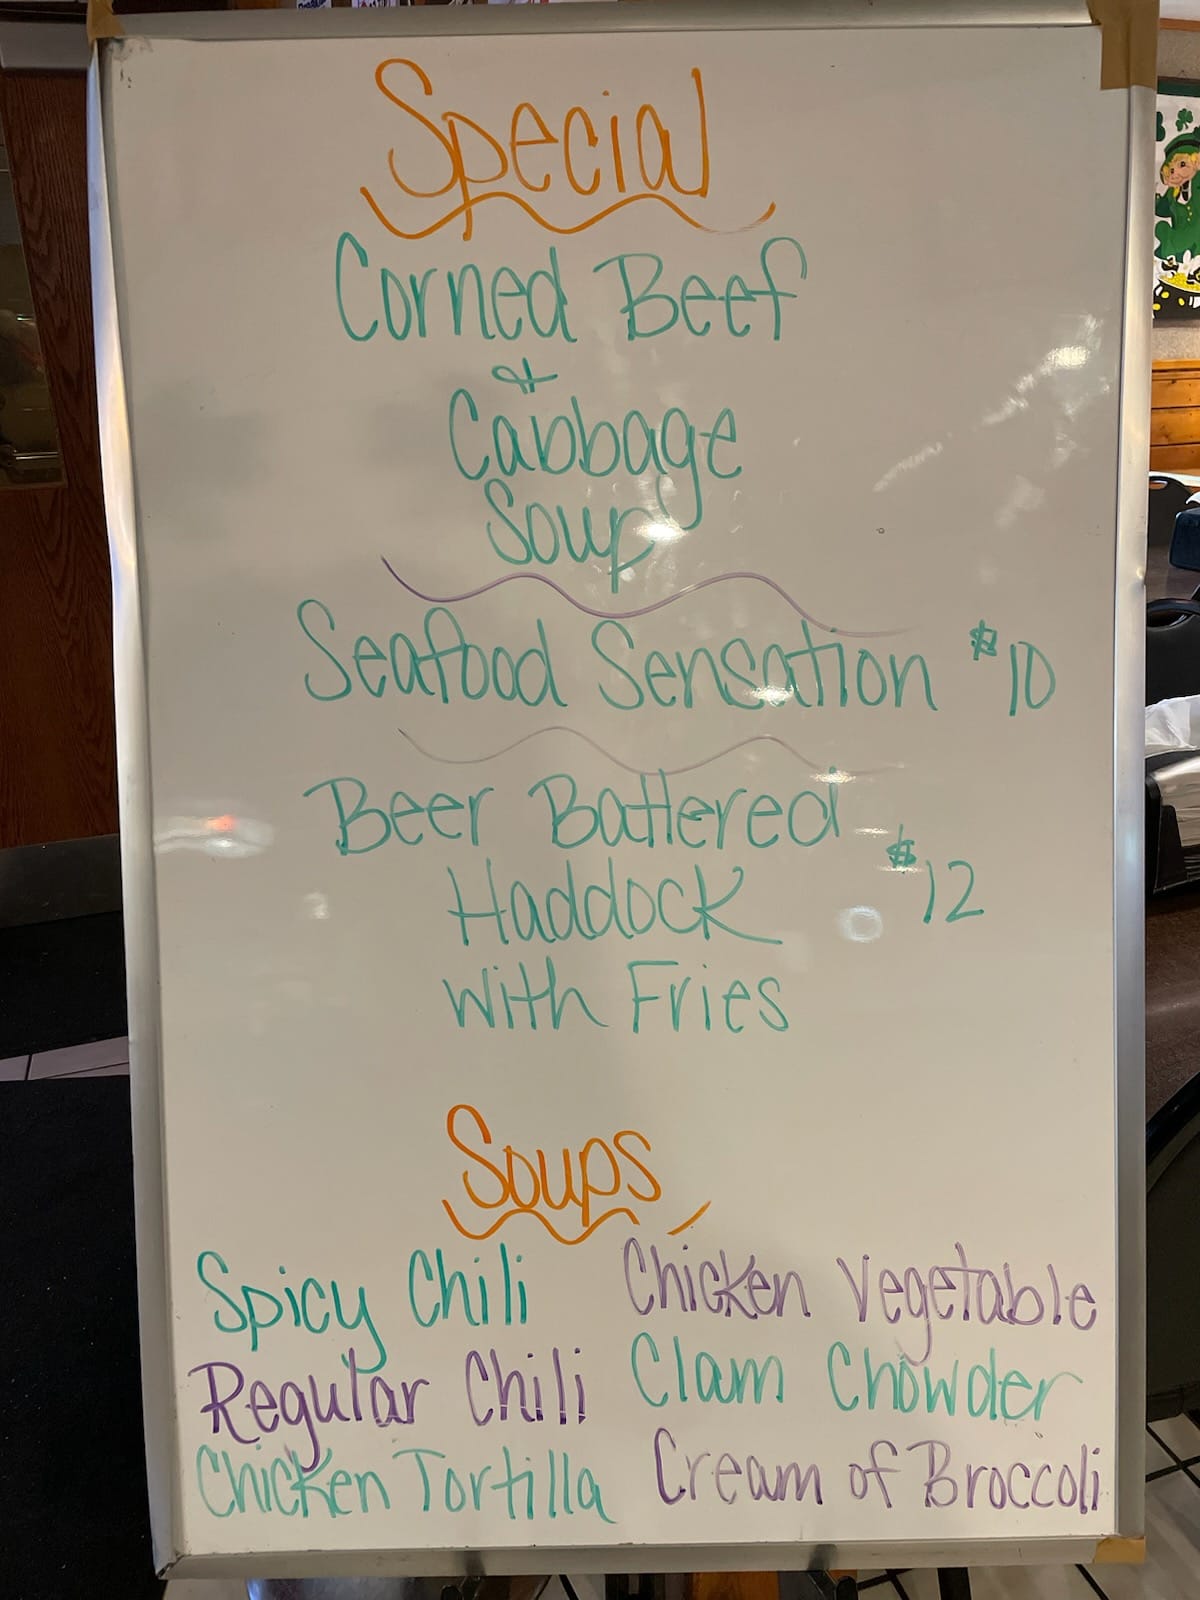 Special
Corned Beef
&
Cabbage
Soup
Seafood Sensation $10
Beer Battered
Haddock $12
with Fries
Soups
Spicy Chili Chicken Vegetable
Regular Chili Clam Chowder
Chicken Tortilla Cream of Broccoli